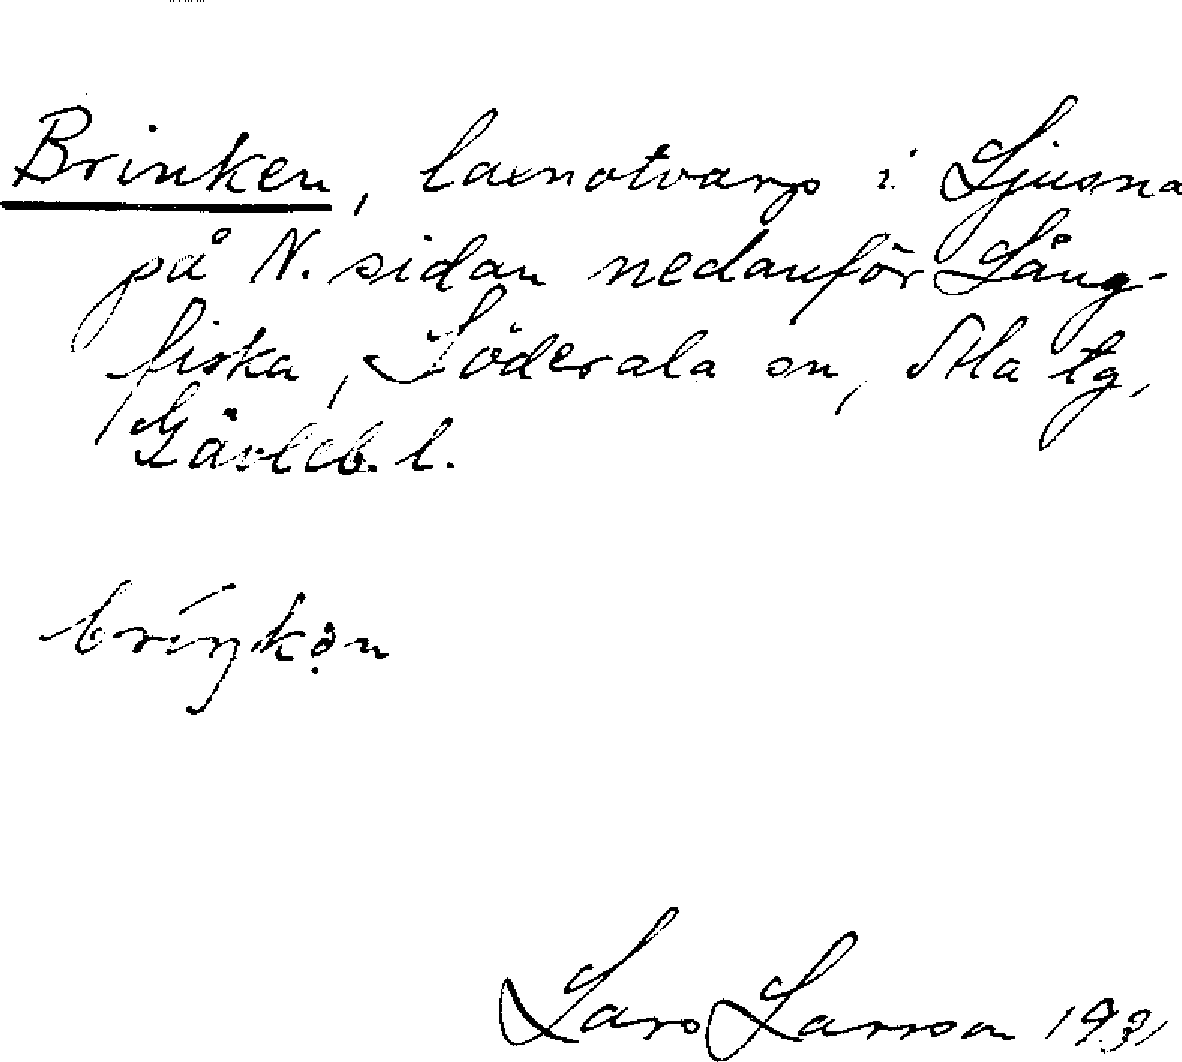 Brinken, laxnotvarp i Ljusna
på N. sidan nedanför Lång-
fiska, Söderala sn, Ala tg,
Gävleb. l.
bríŋkən
Lars Larsson 1931